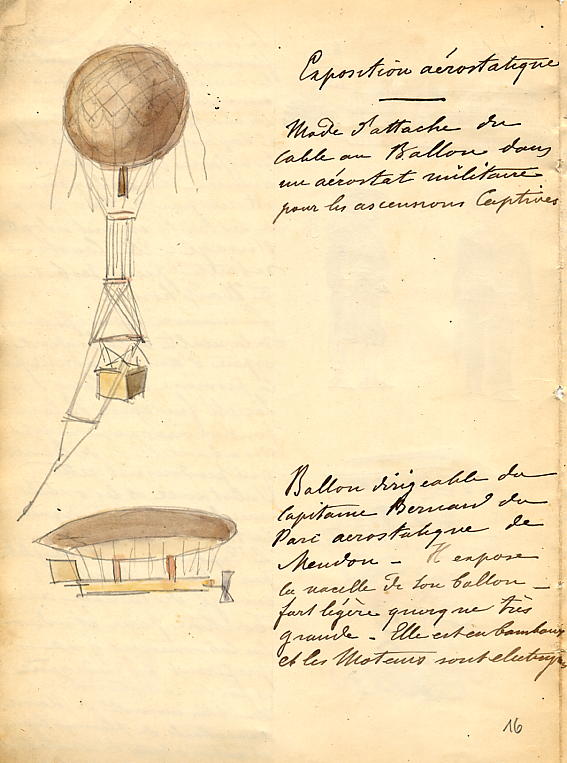 Exposition aérostatique
Mode d'attache du
Cable au Ballon dans
un aérostat militaire
pour les ascensions Captives
Ballon dirigeable du
Capitaine Bernard du
Parc aerostatique de
Meudon - Il expose
la nacelle de son ballon -
fort légère quoique très
grande - Elle est en bambous
et les Moteurs sont electriques
16